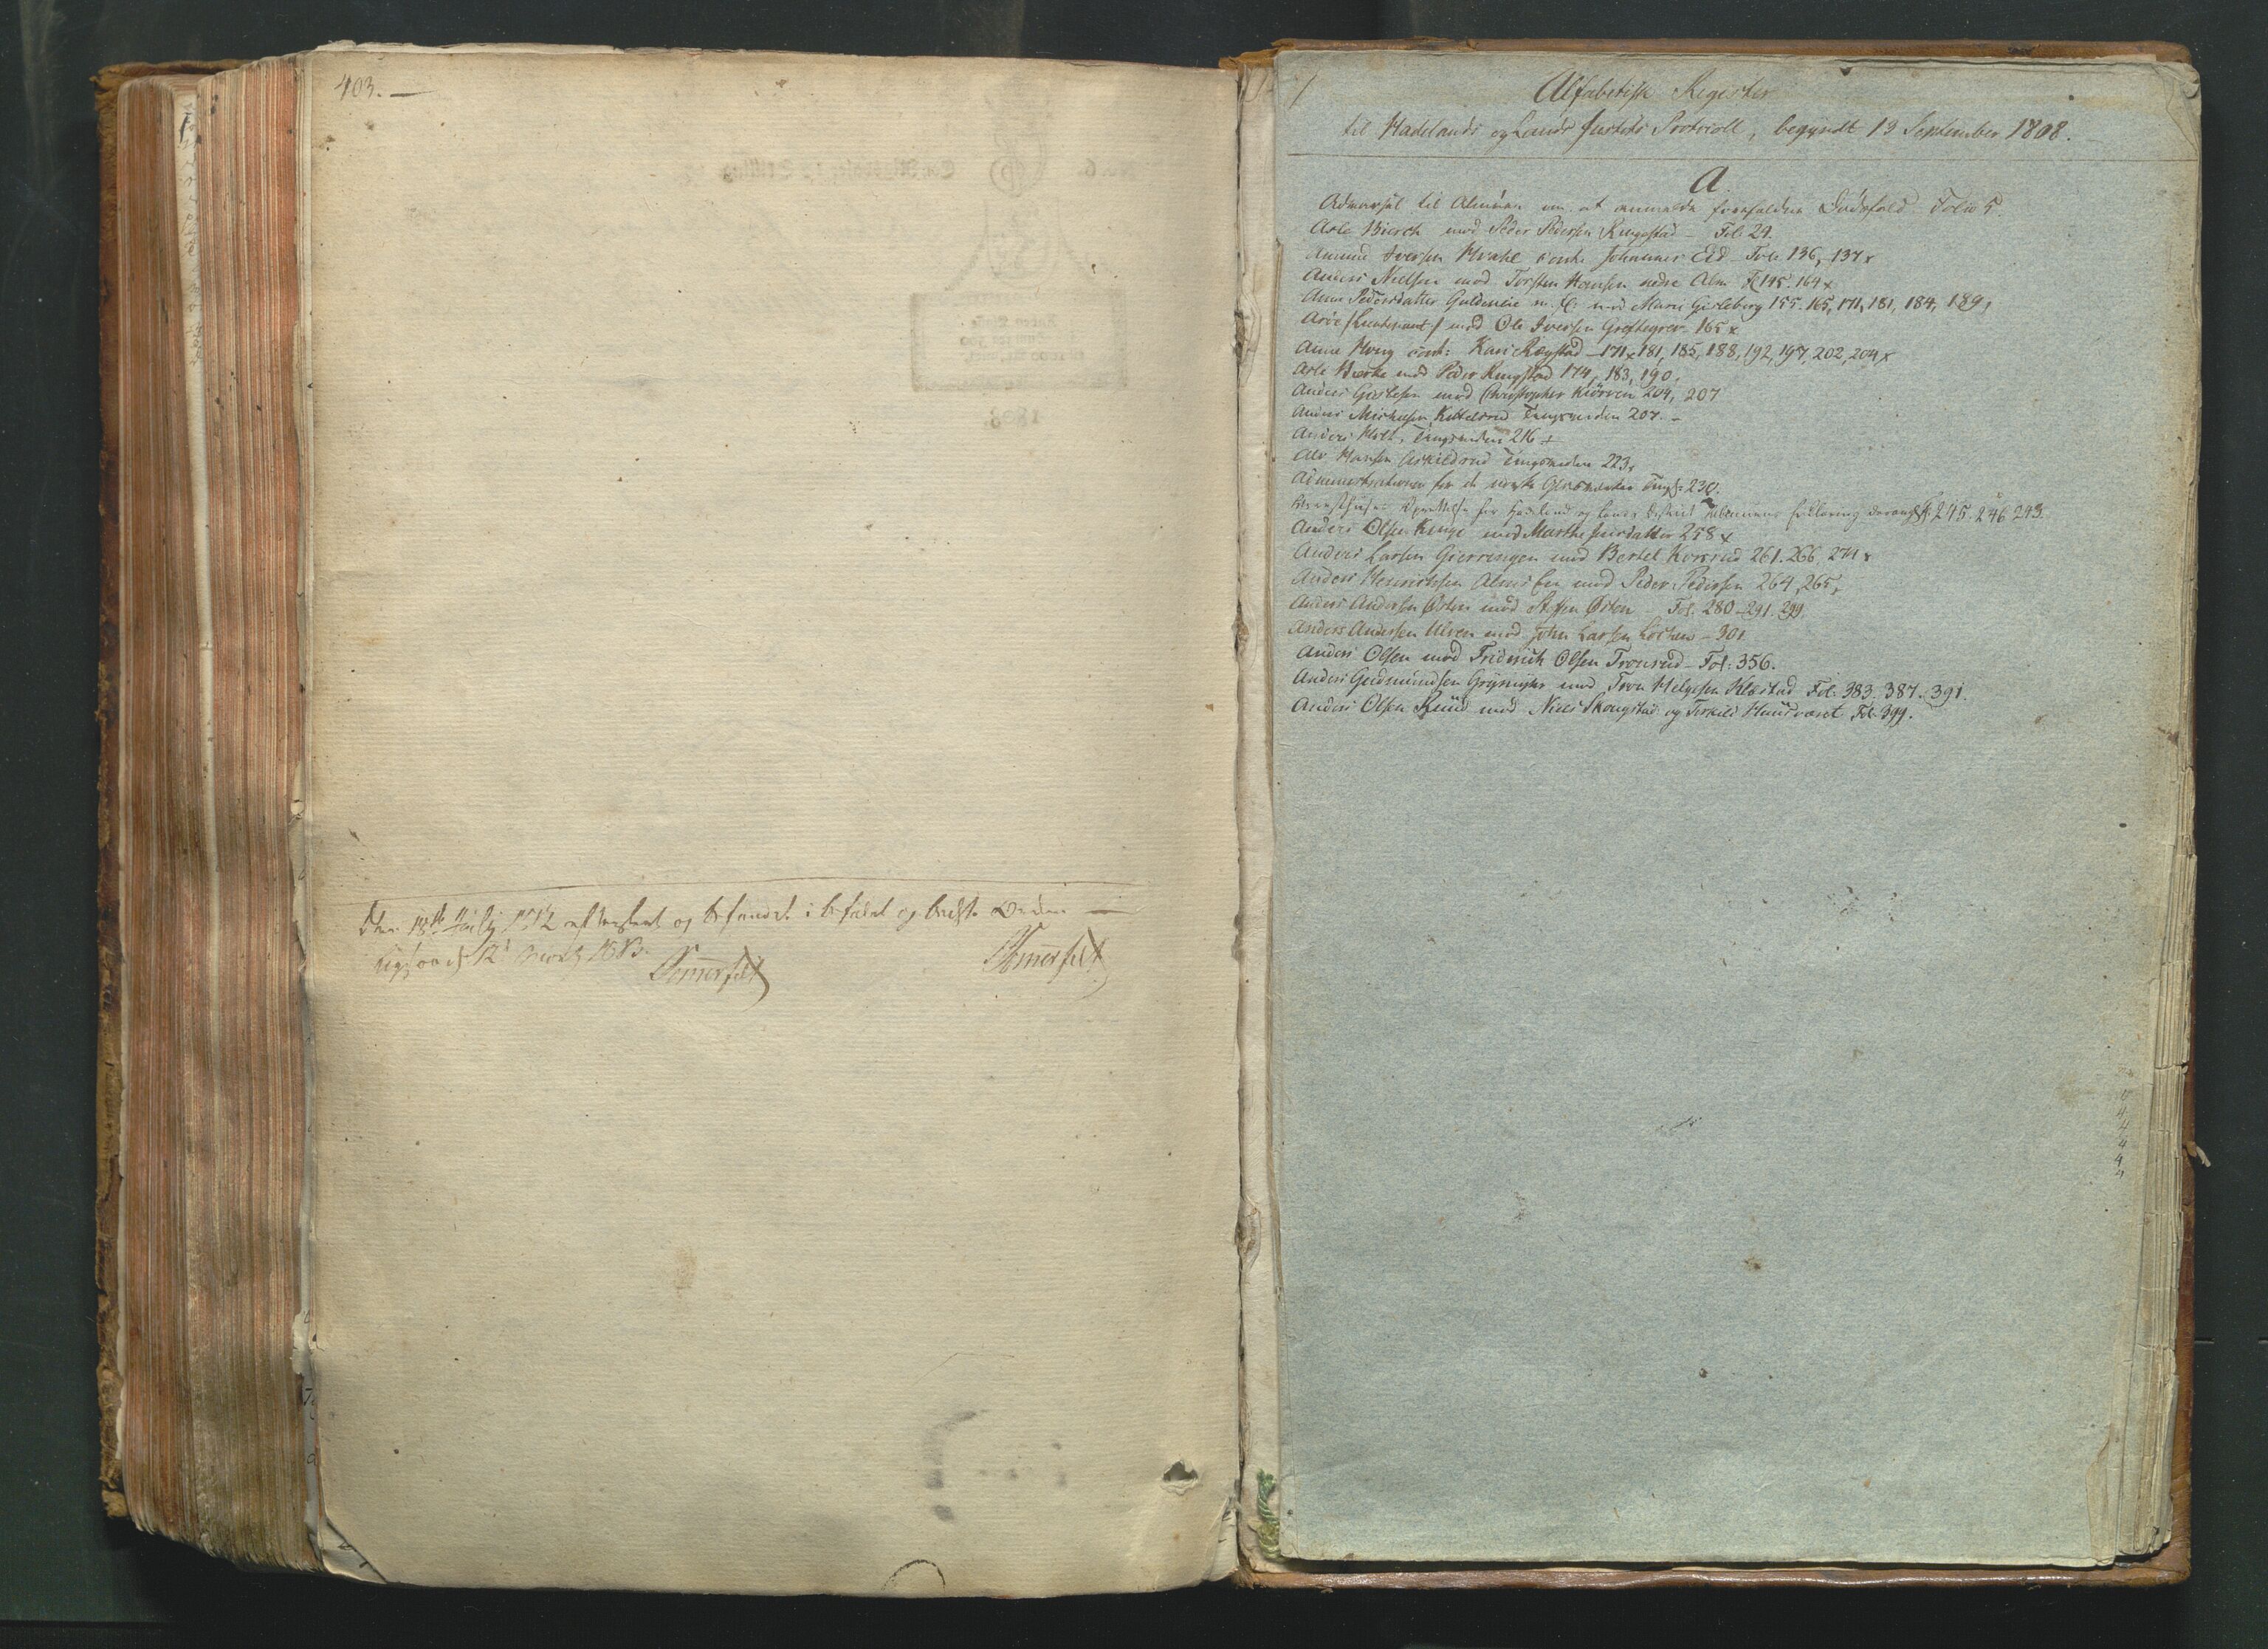 403. —
Den 18de Julij 1812 efterseet og befundet i befalet og bedste Orden —
Ligesaa d 12t 1813.
Sommerfelt
Sommerfelt
Alfabetisk Register
til Hadelands og Lands Justits Protocoll, begyndt 13 September 1808.
A.
Advarsel til Almuen om at anmelde forefaldne Dødsfald Folio 5.
Asle Bierch mod Peder Pedersen Ringstad – Fol: 29.
Amund Iversen Hvahl cont: Johannes Eid Fol: 136, 137 x
Anders Nielsen mod Torsten Hansen nedre Alm Fol 145. 164 x
Anne Pedersdatter Guldeneie m. fl. mod Mari Gisleberg 155. 165, 171, 181, 184, 189,
Aröe /Lieutenant/ mod Ole Iversen Greftegrev 165 x
Anne Houg cont: Kari Rægstad – 171 x 181, 185, 188, 192, 197, 202, 204 x
Asle Bierke mod Peder Ringstad 174, 183, 190,
Anders Gulbrsen mod Christopher Kiörven 204, 207
Anders Michelsen Kittelsrud Tingsvidne 207. –
Anders Holt, Tingsvidne 216 –
Alv Hansen Askildsrud Tingsvidne 223,
Administrationen for de norske Glasværker Tingsv: 230.
Arresthuses Oprettelse for Hadeland og Lands District Almuens Erklæring derom Fol: 245. 246 293.
Anders Olsen Kinge mod Marthe Iversdatter 258 x
Anders Larsen Gierringen mod Bertel Korsrud 261. 266. 274 x
Anders Henrichsen Almseie mod Peder Pedersen 264, 265,
Anders Andersen Østen mod Steffen Østen – Fol. 280 – 291. 299
Anders Andersen Ulven mod John Larsen Lochen – 301.
Anders Olsen mod Friderich Olsen Tronrud – Fol: 356.
Anders Gudmundsen Grymyr mod Tron Helgesen Klæstad Fol. 383. 387. 391.
Anders Olsen Ruud mod Niels Skougstad og Terkild Haugværet Fol. 399.